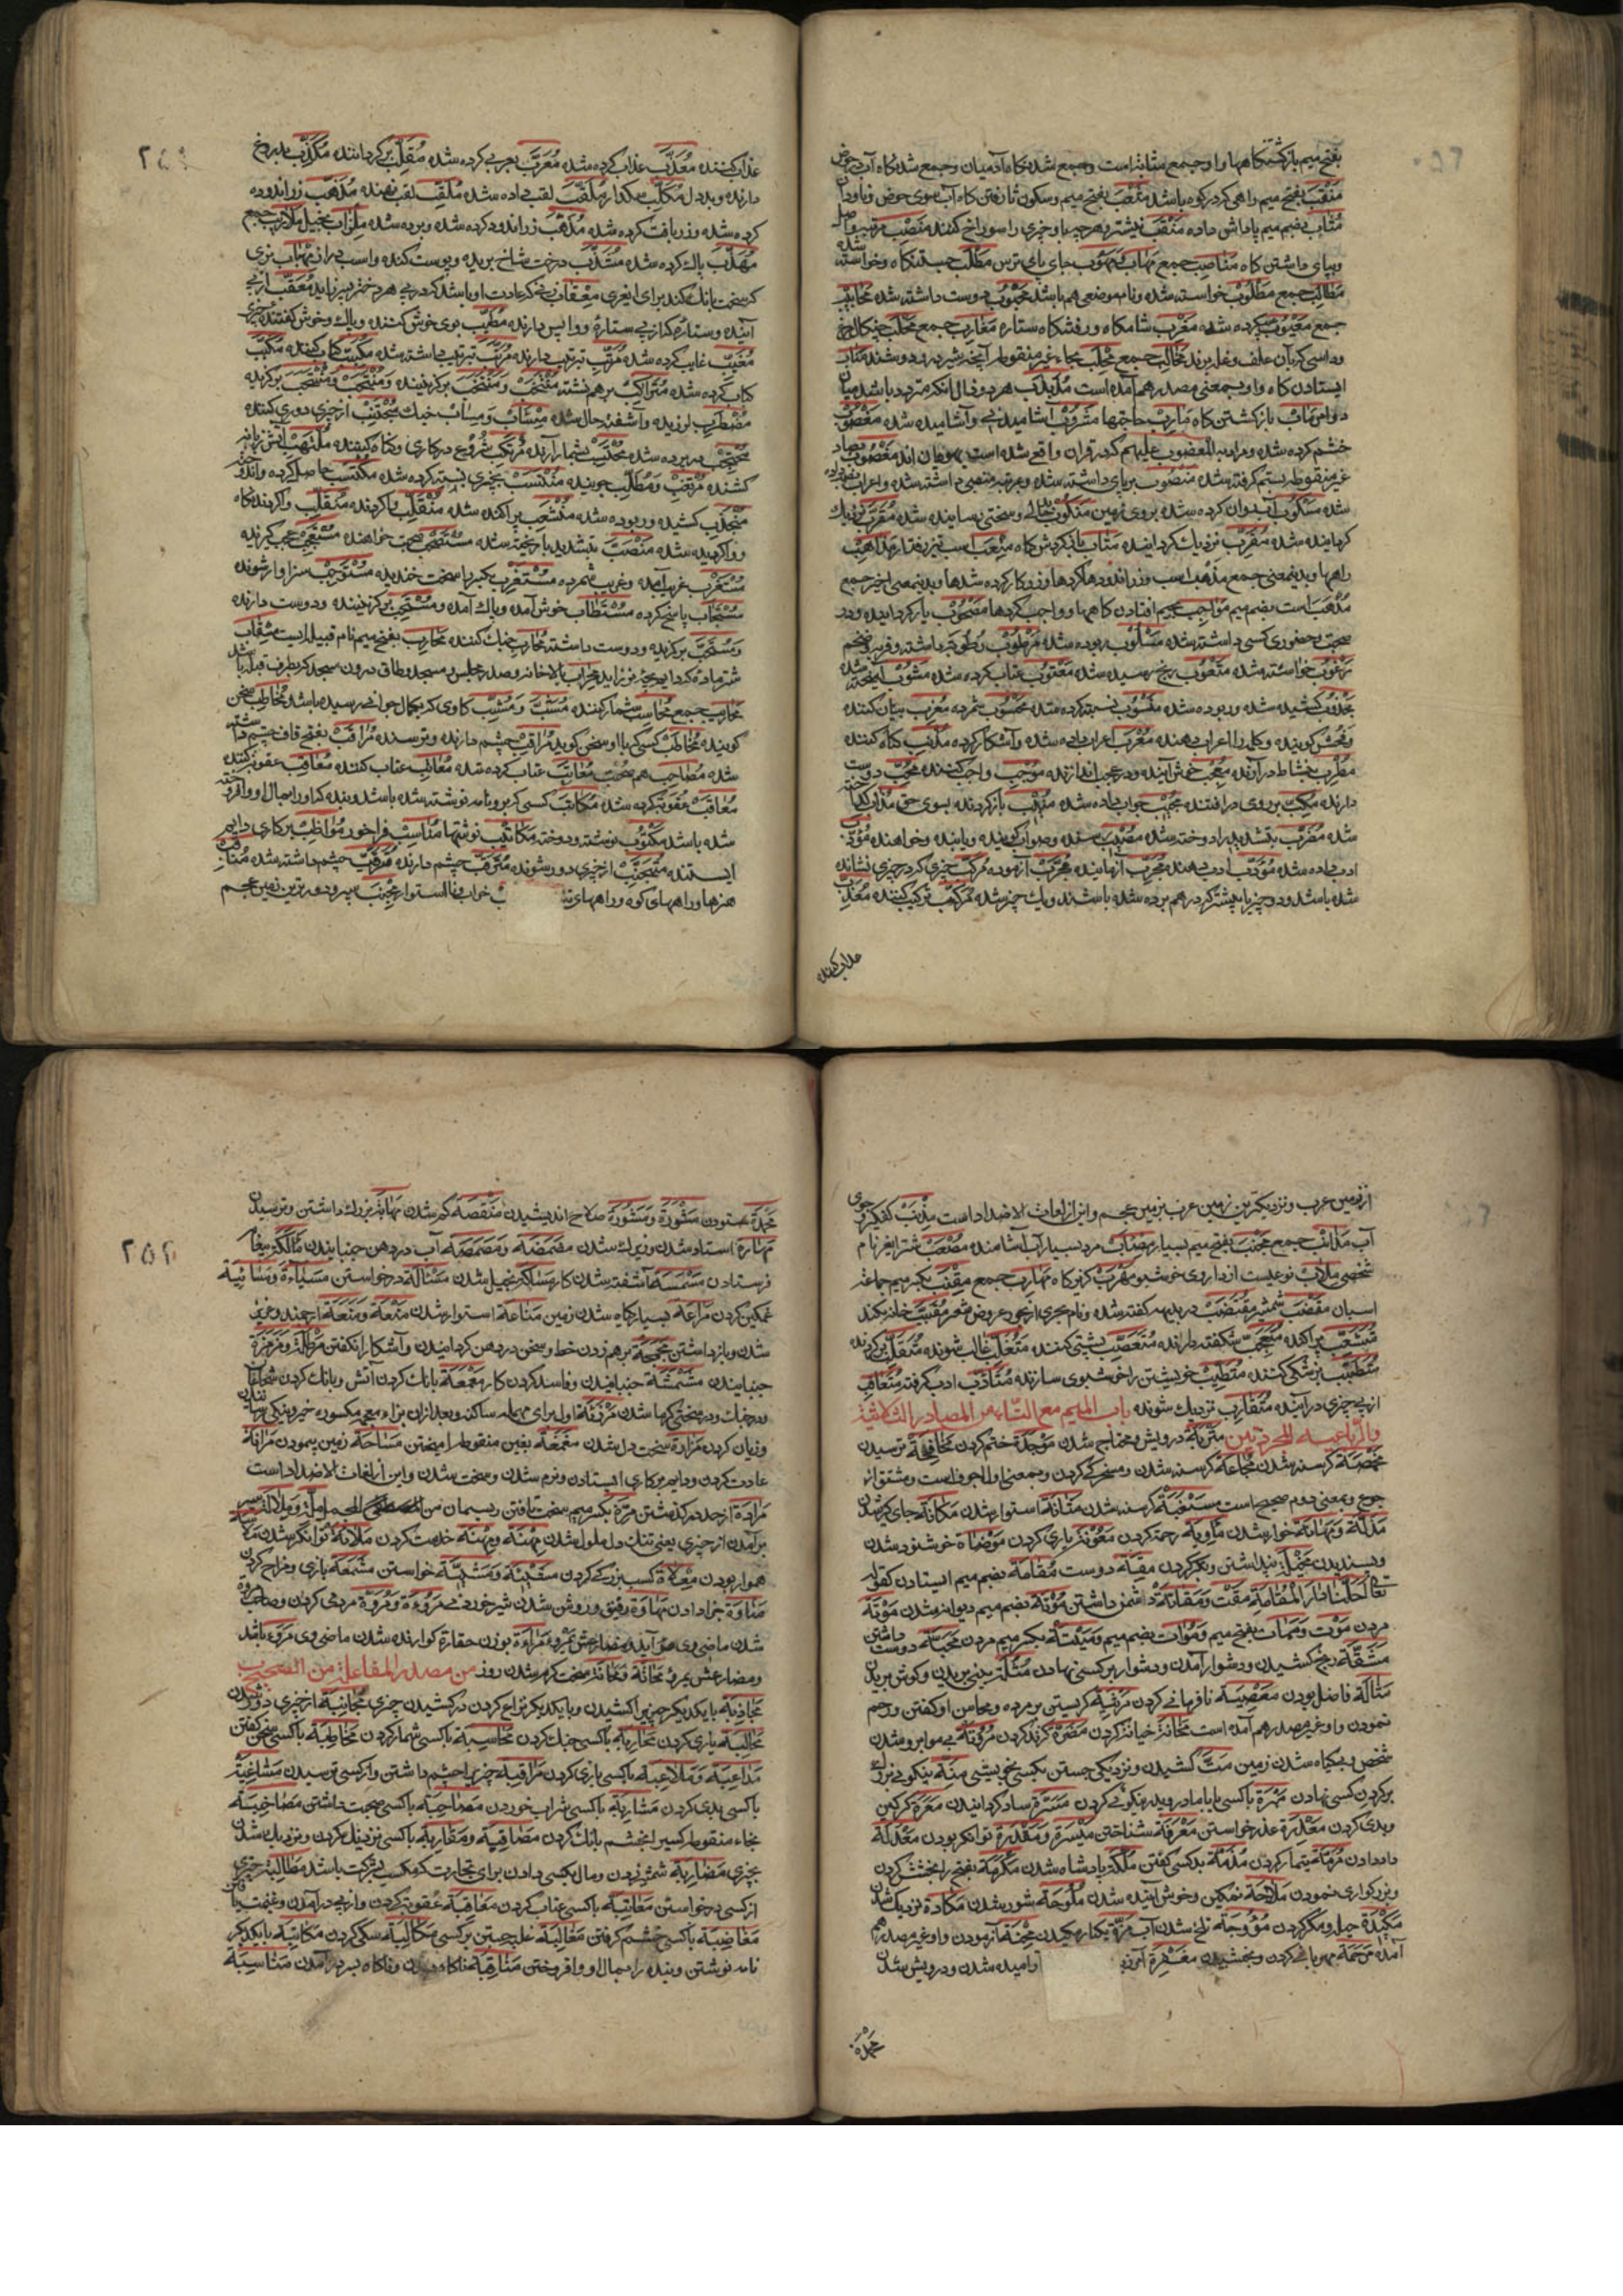 بفتح میم بازگشتنگاهها واو جمع مثابه است وجمع شدنگاه آدمیان وجمع شدگاه آب در حوض
منقب بفتح میم راهی که در کوه باشد مثعب بفتح میم وسکون ثا رفتن گاه آب سوی حوض وناودان
مثاب بضم میم پاداش داده منقب نیشتر وهر چه باو چیزی را سوراخ کنند منصب مرتبه واصل
وبپای داشتن گاه مناصب جمع مهاب ومهوب جای بای ترس مطلب جستنگاه وخواسته شده
مطالب جمع مطلوب خواسته شده ونام موضعی هم باشد محبوب دوست داشته شده
جمع معیوب عیب کرده شده مغرب شامگاه ورفتنگاه ستاره مغارب جمع مخلب چنگال مرغ
وداسی که بآن علف وغله برند مخالب جمع محلب بحاء غیر منقوطه آنچه شیر در و دوشند متاب
ایستادن گاه واو بمعنی مصدر هم آمده است مذبذب هر دو ذال آنکه متردد باشد میان
دو امر مآب بازگشتن گاه مآرب حاجتها مشروب آشامیدنی وآشامیده شده مغضوب
خشم کرده شده ومراد به المغضوب علیهم که در قران واقع شده است یهودان اند مغصوب بصاد
غیر منقوطه بستم گرفته شده منصوب برپای داشته شده ومرتبه منصبی داشته شده واعراب نصب داده
شده مسکوب آب روان کرده شده بروی زمین منکوب وسختی رسانیده شده مقرب نزدیک
گردانیده شده مقرب نزدیک گرداننده متاب بازگردش گاه منعب اسب تیز رفتار مذاهب
راهها وبدینمعنی جمع مذهب است وزراندودهاکردها وزرکارکرده شدها وبدینمعنی اخیر جمع
مذهب است بضم میم مواجب بجیم افتادن گاهها وواجب کردها مصحوب یار گردانیده ودر
صحبت وحضوری کسی داشته شده مسلوب ربوده شده مرطوب رطوبة داشته وفربه وضخم
مرغوب خواسته شده متعوب برنج رسیده شده معتوب عتاب کرده شده مشوب آمیخته شده
مجذوب کشیده شده وربوده شده منسوب نسبت کرده شده محسوب شمرده معرب بیان کننده
وفحش گوینده وکلمه را اعراب دهنده معرب اعراب داده شده وآشکار کرده مذنب گناه کننده
مطرب بنشاط درآرنده معجب خوش آینده ودر عجب اندازنده موجب واجب کننده محب دوست
دارنده مکب بروی در افتنده مجیب جواب داده شده منیب بازگردنده بسوی حق مذاب گداخته
شده مضرب بتشدید را دوخته شده مصیب رسنده وصواب گوینده ویابنده وخواهنده مؤدب
ادب داده شده مؤدب ادب دهنده مجرب آزماینده مجرب آزموده مرکب چیزی که در چیزی نشانده
شده باشد ودو چیز یا بیشتر که در هم برده شده باشند ویک چیز شده مرکب ترکیب کننده معذب
عذاب کننده
عذاب کننده معذب عذاب کرده شده معرب بعربی کرده شده مقلب برگرداننده مکذب بدروغ
دارنده وبددل مکلب سگدار ملقب لقب داده شده ملقب لقب نهنده مذهب زراندوده
کرده شده وزربافت کرده شده مذهب زراندود کرده شده وبرده شده ملزاب بخیل ملازب جمع
مهذب پاک کرده شده مشذب درخت شاخ بریده وپوست کنده واسب دراز مهباب بزی
که سخت بانگ کند برای ایغری معقاب زنی که عادت او باشد که در پی هر دختر پسر زاید معقب از پی
آینده وستاره که از پی ستارهٔ وواپس دارنده مطیب بوی خوش کننده وپاک وخوش گفتنده چیزی
مغیب غایب کرده شده مرتب ترتیب دارنده مرتب ترتیب داشته شده مکتب کتاب کننده مکتب
کتاب کرده شده متراکب برهم نشسته منتخب ومنتخب برگزیننده ومنتجب ومنتجب برگزیده
مضطرب لرزیده وآشفته حال شده میشاب ومساب خیک مجتنب از چیزی دوری کننده
محتجب در پرده شده محتسب بشمار آرنده مرتکب شروع در کاری وگناه کننده ملتهب آتش زبانه
کشنده مرتقب ومطلب جوینده منتسب بچیزی نسبته کرده شده مکتسب حاصل کرده واندوخته
منجذب کشیده وربوده شده منشعب پراکنده شده منقلب واگردنده منقلب واگردندگاه
وواگردیده شده منصب بتشدید با ریخته شده مستصحب صحبت خواهنده مستعجب عجب گیرنده
مستغرب غریب آمده وغریب شمرده مستغرب بکسر را سخت خندیده مستوجب سزاوار شونده
مستجاب پاسخ کرده مستطاب خوش آمده وپاک آمده ومستحب برگزیننده ودوست دارنده
ومستحب برگزیده ودوست داشته محارب جنگ کننده محارب بفتح میم نام قبیله ایست مشقاب
شتر ماده که دایم بچهٔ نر زاید محراب بالاخانه وصدر مجلس ومسجد وطاق درون مسجد که بطرف قبله باشد
محاریب جمع محاسب شمار کننده مشب ومشبب گاوی که بکمال جوانی رسیده باشد مخاطب سخن
گوینده مخاطب کسی که با او سخن گوید مراقب چشم دارنده وترسنده مراقب بفتح قاف چشم داشته
شده مصاحب هم صحبت معاتب عتاب کرده شده معاتب عتاب کننده معاقب عقوبه کننده
معاقب عقوبة کرده شده مکاتب کسی که برو نامه نوشته شده باشد وبنده که او را بمال او وا فروخته
شده باشد مکتوب نوشته ودوخته مکاتیب نوشتها مناسب فراخور مواظب برکاری دایم
ایستنده متجنب از چیزی دور شونده مترقب چشم دارنده مترقب چشم داشته شده
هنرها وراههای کوه وراههای خواب فا استوار مجنب سپر ودورترین زمین عجم
از زمین عرب ونزدیکترین زمین عرب بزمین عجم واین از لغات الاضداد است مذنب کفگیر وجوی
آب مذانب جمع مجنب بفتح میم بسیار مصاب مرد بسیار آب آشامنده مصعب شتر ایغر ونام
شخصی ملاب نوعیست از داروی خوشبو مهرب گریزگاه مهارب جمع مقنب بکسر میم جماعة
اسبان مقضب شمشیر مقتضب در بدیهه گفته شده ونام بحری از بحور عروض شعر مقبب خانه گنبد
متشعب پراکنده متعجب شگفته دارنده متعصب پشتی کننده متغلب غالب شونده متقلب برگردنده
متطبب پزشکی کننده متطیب خویشتن را خوشبوی سازنده متأدب ادب گرفته متعاقب
از پی چیزی درآینده متقارب نزدیک شونده باب المیم مع التاء من المصادر الثلاثیة
والرباعیه المجردتین متربة درویش ومحتاج شدن موجدة خشم کردن مخافة ترسیدن
مخمصة گرسنه شدن مجاعة گرسنه شدن ومسخرگی کردن وبمعنی اول اجوف است ومشتق از
جوع وبمعنی دوم صحیح است مسغبة گرسنه شدن متانة استوار شدن مکانة جای گیر شدن
مذلة ومهانة خوار شدن مأویة رحمة کردن معونة یاری کردن مرضاة خوشنود شدن
وپسندیدن مخیلة پنداشتن وتکبر کردن مقة دوست مقامة بضم میم ایستادن کقوله
تعالی احلنا دار المقامة مقت ومقاتة دشمن داشتن موتة بضم میم دیوانه شدن موتة
مردن موت وممات بفتح میم وموات بضم میم ومیتة بکسر میم مردن محبة دوست داشتن
مشقة رنج کشیدن ودشوار آمدن ودشوار بر کسی نهادن مثلة بینی بریدن وگوش بریدن
مثالة فاضل بودن معصیة نافرمانی کردن مرثیة گریستن بر مرده ومحاسن او گفتن ورحم
نمودن واو غیر مصدر هم آمده است مخانة خیانة کردن مضرة گزند کردن مروتة بی مو ابرو شدن
شخص وبی گیاه شدن زمین مت کشیدن ونزدیکی جستن بکسی بخویشی منة نیکوئی بزرگ
برکردن کسی نهادن مبرة با کسی یا با مادر وپدر نیکوئی کردن مسرة شاد گردانیدن معرة گرگین
وبدی کردن معذرة عذر خواستن معرفة شناختن میسرة ومقدرة توانگر بودن معدلة
داد دادن مرمة تیمار کردن مذمة بد کسی گفتن ملکة پادشاه شدن مکرمة بفتح را بخشش کردن
وبزرگواری نمودن ملاحة نمکین وخوش آینده شدن ملوحة شور شدن مکادة نزدیک شدن
مکیدة حیله ومکر کردن مؤوجة تلخ شدن آب مزة یکبار مکیدن محنة آزمودن واو غیر مصدر هم
آمده مرحمة مهربانی کردن وبخشیدن مغفرة آمرز وامیده شدن ودرویش شدن
محمدة
محمدة ستودن مشورة ومشورة صلاح اندیشیدن منقصة کم شدن مهابة بزرگ داشتن وترسیدن
مهارة استاد شدن وزیرک شدن مضمضة ومصمصة آب در دهن جنبانیدن مالکة پیغام
فرستادن مشمسة آشفته شدن کار مساکة بخیل شدن مسئالة درخواستن مساءة ومسائیة
غمگین کردن مراعة بسیار گیاه شدن زمین مناعة استوار شدن منعة ومنعة ارجمند وعزیز
شدن وباز داشتن مجمجة برهم زدن خط وسخن در دهن گردانیدن وآشکارا نگفتن مرمرة ومزمزة
جنبانیدن مشمشة جنبانیدن وفاسد کردن کار معمعة بانگ کردن آتش وبانگ کردن شجاعان
در جنگ ودر سختی گرما شدن مرزئة اول برای مهمله ساکنه وبعد ازان بزاء معجمه مکسوره خیر ونیکی رسانیدن
وزیان کردن مرادة سخت دل شدن مغمغة بغین منقوطه آمیختن مساحة زمین پیمودن مرانة
عادت کردن ودایم برکاری ایستادن ونرم شدن وسخت شدن واین از لغات الاضداد است
مرادة از حد درگذشتن مرة بکسر میم سخت تافتن ریسمان ملة وملالة بسیر
برآمدن از چیزی یعنی تنک دل وملول شدن مهنة ومهنة خدمت کردن ملاءة توانگر شدن
هموار بودن معلاة کسب بزرگی کردن مسئینة ومشیة خواستن مشمعة بازی ومزاح کردن
مناوة جزا دادن مهاوة رقیق وروشن شدن شیر خوردنی مروءة ومروة مردمی کردن وصاحب مروه
شدن ماضی وی مرؤ آید ومضارعش یمرؤ مراءة بوزن حقارة گوارنده شدن ماضی وی مرؤ باشد
ومضارعش یمرؤ مخانة سخت گرم شدن روز من مصدر المفاعلة من الصحیح
مجاذبة با یکدیگر چیزیرا کشیدن وبا یکدیگر نزاع کردن در کشیدن چیزی مجانبة از چیزی دور شدن
مجالبة یاری کردن محاربة باکسی جنگ کردن محاسبة باکسی شمار کردن مخاطبة باکسی سخن گفتن
مداعبة وملاعبة باکسی بازی کردن مراقبة چیزیرا چشم داشتن واز کسی ترسیدن مشاغبة
باکسی بدی کردن مشاربة باکسی شراب خوردن مصاحبة باکسی صحبت داشتن مصاخبة
بخاء منقوطه کسیرا بخشم بانگ کردن مصاقبة ومقاربة باکسی نزدیکی کردن ونزدیک شدن
بچیزی مضاربة شمشیر زدن ومال بکسی دادن برای تجارت که مکسب بشرکت باشد مطالبة چیزی
از کسی درخواستن معاتبة باکسی عتاب کردن معاقبة عقوبة کردن واز پی درآمدن وغنیمت یافتن
مغاضبة باکسی خشم گرفتن مغالبة غلبه جستن بر کسی مکالبة سگی کردن مکاتبة با یکدیگر
نامه نوشتن وبنده را بمال او وا فروختن مناقبة ناگاه دیدن وناگاه بسر درآمدن مناسبة